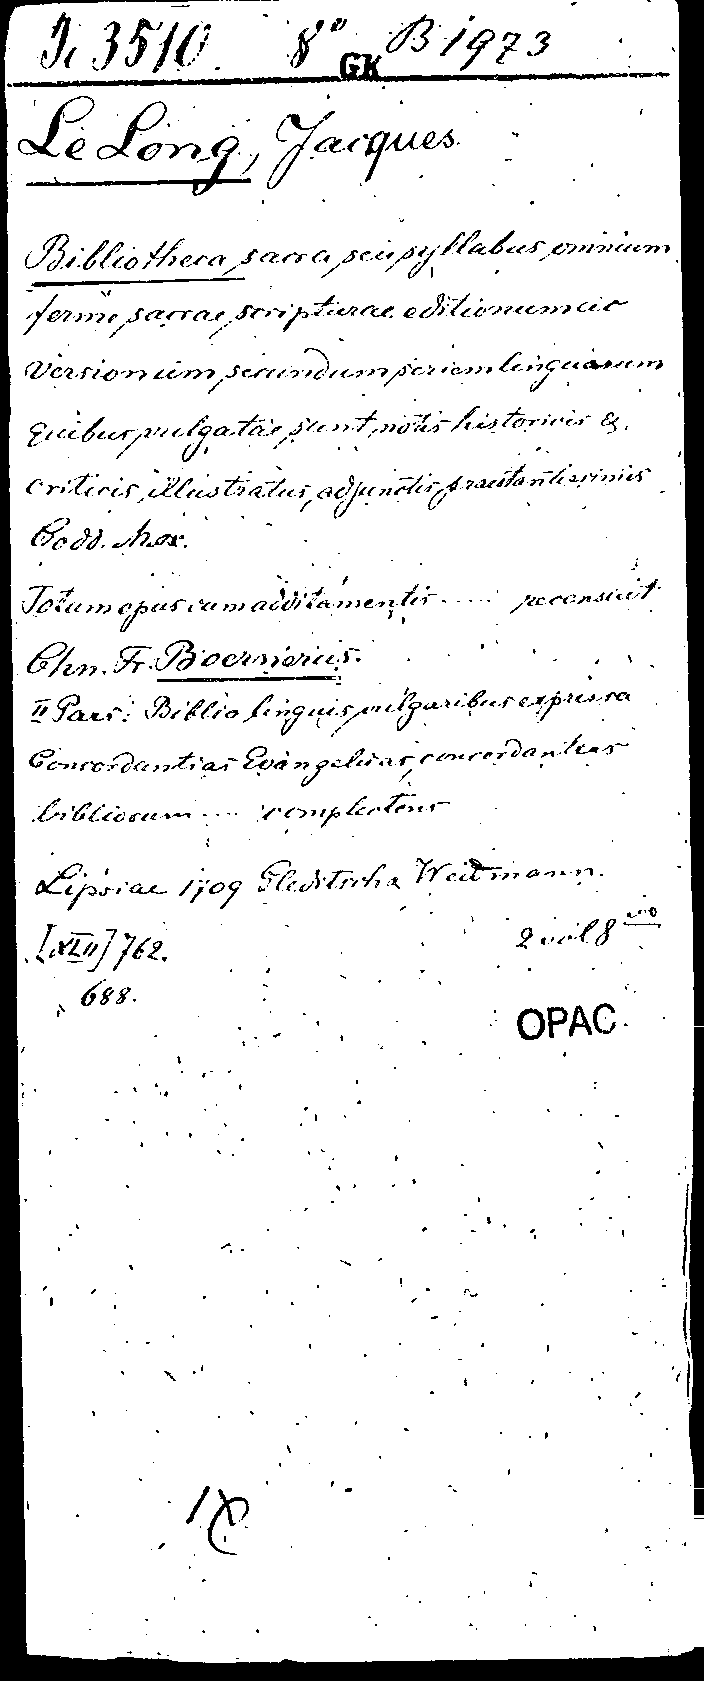 Ji 3510. 8° B 1973
GK
Le Long, Jacques
Bibliotheca sacra seu syllabus omnium
ferme sacrae scripturae editionum ac
Versionum secundum seriem linguarum
quibus vulgatae sunt notis historicis &
criticis illustratus, adjunctis praestantissimis
Codd. Msx.
Totum opus cum additamentis .... recensuit
Chn. Fr. Boernerus.
II Pars: Biblio linguis vulgaribus expressa
Concordantias Evangelicas, concordantias
bibliorum .... complectens
Lipsiae 1709 Gleditsch & Weidmann.
[XLII] 762. 2 vol 8vo
688.
OPAC